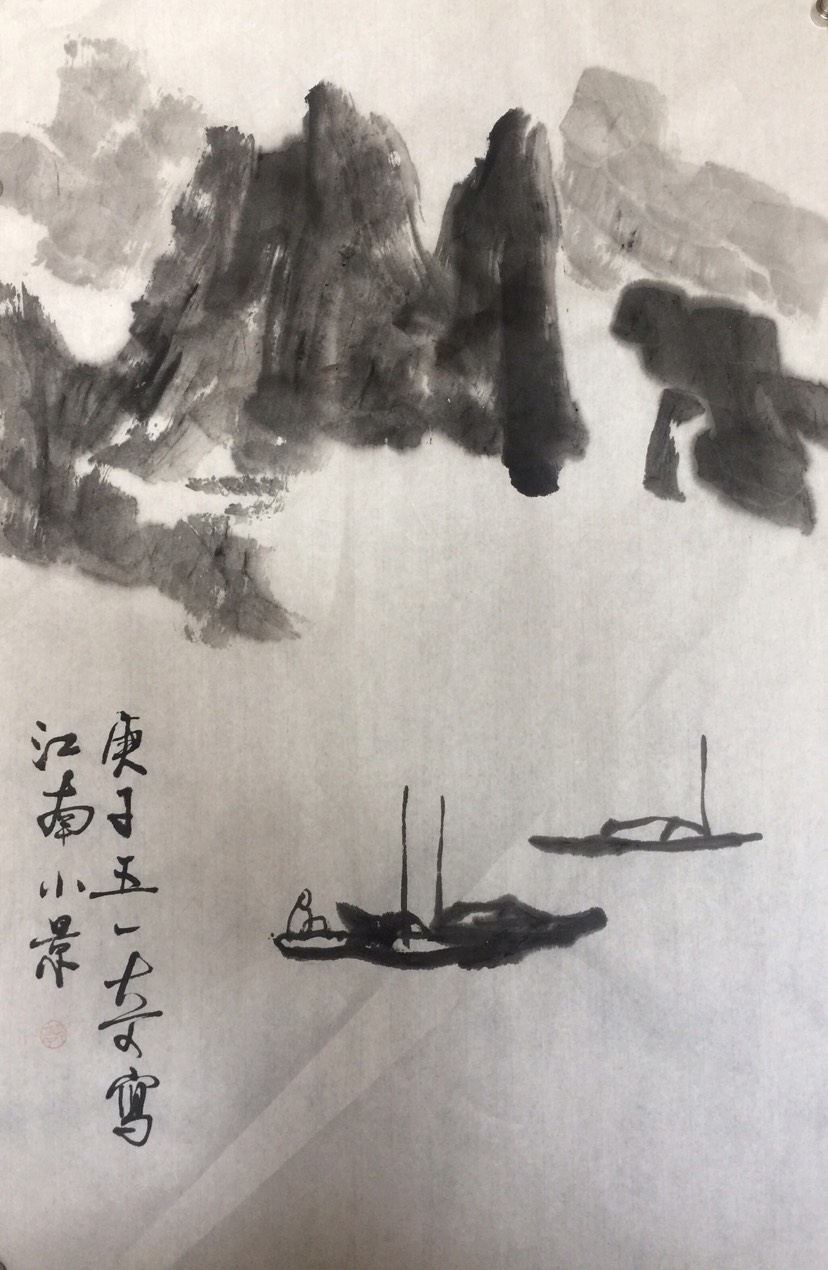 庚子五一大文寫
江南小景